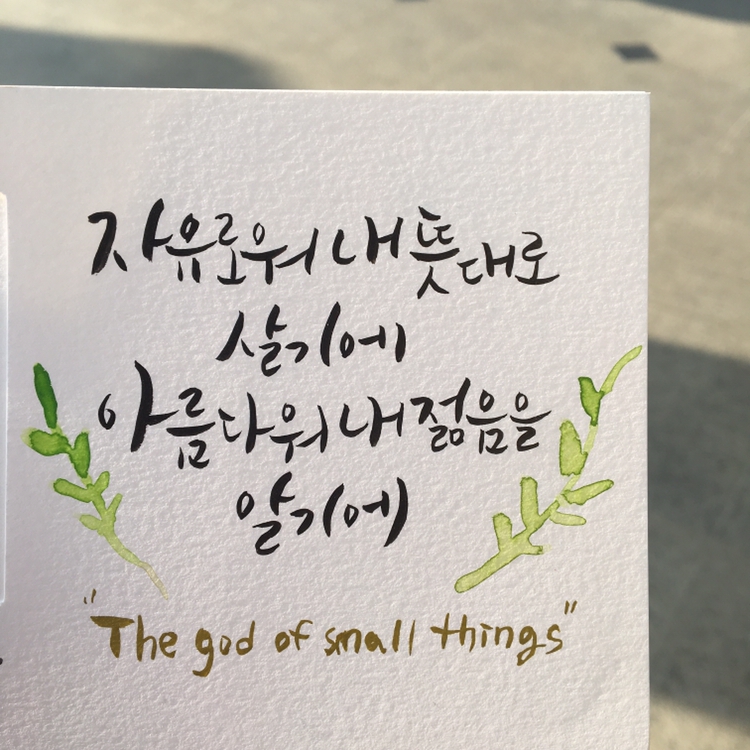 자유로워 내 뜻대로
살기에
아름다워 내 젊음을
알기에
"The god of small things"